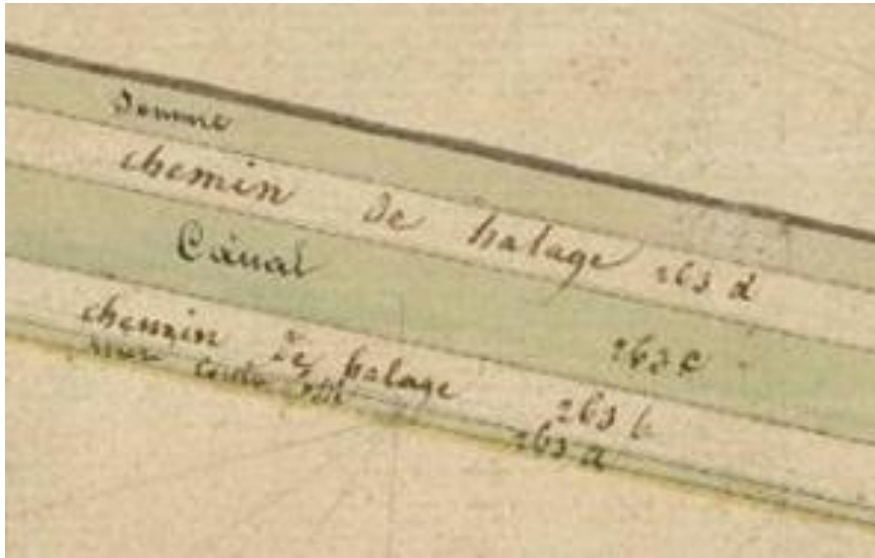 Somme
chemin de halage 263 d
Canal 263 c
chemin de halage 263 b
263 a